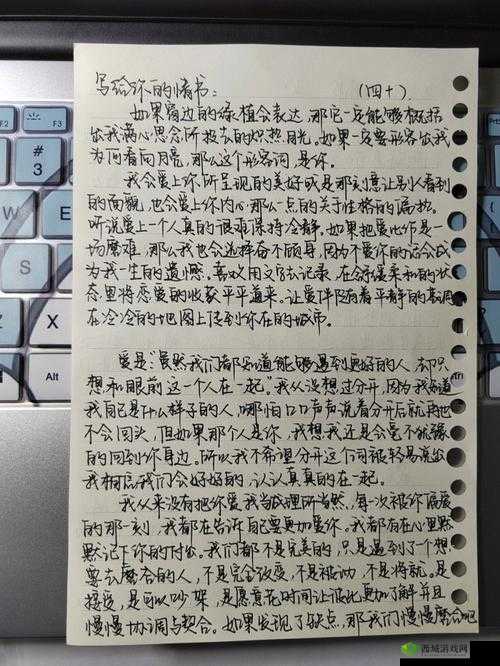 写给你的情书：（四十）
如果窗边的绿植会表达，那它一定能够概括
出我满心思念所投去的炽热目光。如果一定要形容出我
为何看向月亮，那么这个形容词，是你。
我会爱上你所呈现的美好或是那刻意让别人看到
的面貌，也会爱上你内心那么一点的关于性格的偏执。
听说爱上一个人真的很难保持冷静，如果把爱比作是一
场磨难，那么我也会选择奋不顾身，因为不爱你的话会成
为我一生的遗憾。喜欢用文字去记录，在舒缓柔和的状
态里将恋爱的收获平平道来。让爱伴随着平静的基调
在冷冷的地图上传到你在的城市。
爱是“虽然我们都知道能够遇到更好的人，却只
想和眼前这一个人在一起。”我从没想过分开，因为我知道
我自己是什么样子的人，哪怕口口声声说着分开后就再也
不会回头，但如果那个人是你，我想我还是会毫不犹豫
的回到你身边。所以我不希望分开这个词被轻易说出
我相信我们会好好的，认认真真的在一起。
我从来没有把你爱我当成理所当然，每一次被你偏爱
的那一刻，我都在告诉自己要更加爱你。我都有在心里默
默记下你的付出。我们都不是完美的，只是遇到了个想
要去磨合的人，不是完全改变，不是被动，不是将就。是
接受，是可以吵架，是愿意花时间让彼此更加了解并且
慢慢协调与契合。如果发现了缺点，那我们慢慢磨合吧
F2
F3
西域游戏网